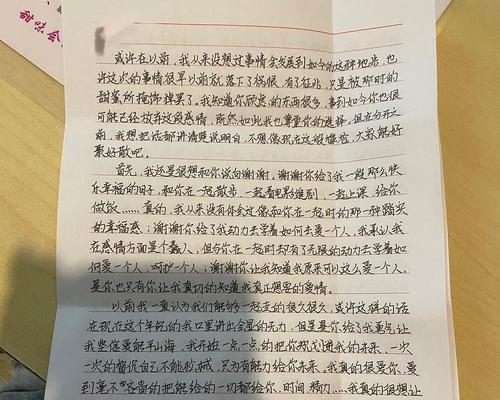 甜味会
或许在以前，我从来没想过事情会发展到如今的这种地步，也
许这次的事情很早以前就落下了祸根，有了征兆，只是被那时的
甜蜜所掩饰掉罢了，我知道你顾虑的东西很多，事到如今你也很
可能已经放弃这段感情，既然如此我也尊重你的选择，但在分开之
前，我想把话都讲清楚说明白，不想像现在这般尴尬，大家能好
聚好散吧。
首先，我还是很想和你说句谢谢。谢谢你给了我一段那么快
乐幸福的日子，和你在一起散步，一起看电影追剧，一起上课，给你
做饭……真的，我从来没有体会过像和你在一起时的那一种踏实
的幸福感；谢谢你给了我动力去学着如何去爱一个人，我承认我
在感情方面是个蠢人，但与你在一起却有了无限的动力去学着如
何爱一个人，呵护一个人；谢谢你让我知道我原来可以这么爱一个人，
是你也只有你让我真切的知道我真正想要的爱情。
以前我一直认为我们能够一起走的很久很久，或许这样的话
在现在这个年纪的我口里讲出会显的无力，但是是你给了我勇气让
我坚信爱能平山海，我开始一点一点的把你规划进我的未来，一次
一次的督促自己不能放纵，只为有能力给你未来。我真的很爱你，爱
到毫不吝啬的把能给的一切都给你，时间 精力……我真的很想让